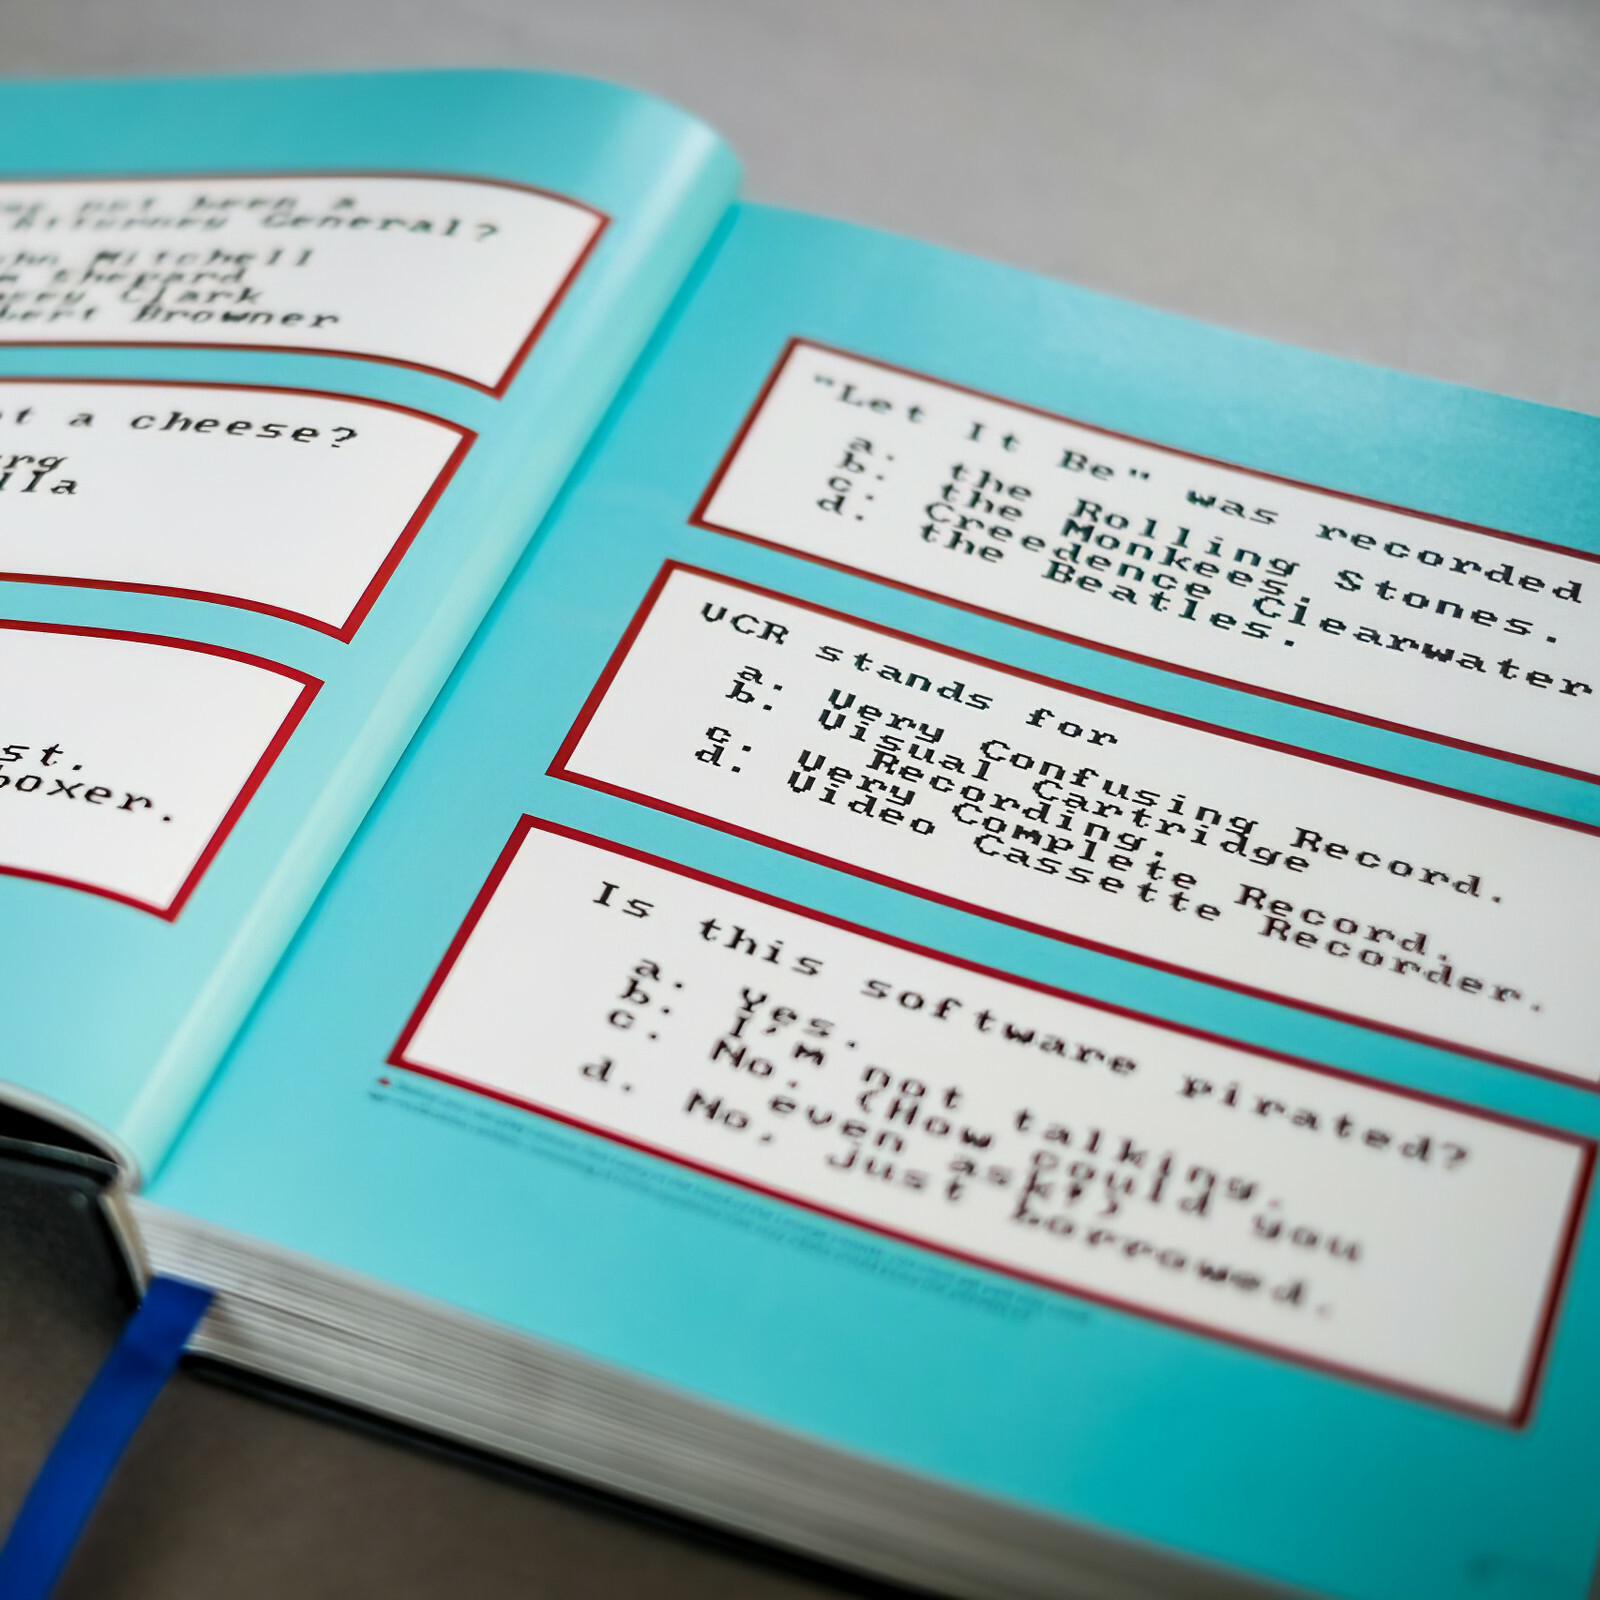 not been a
Attorney General?
Mitchell
Shepard
Clark
Browner
t a cheese?
st.
boxer.
"Let It Be" was recorded
a. the Rolling Stones.
b. the Monkees.
c. Creedence Clearwater
d. the Beatles.
VCR stands for
a. Very Confusing Record.
b. Visual Cartridge
Recording.
c. Very Complete Record.
d. Video Cassette Recorder.
Is this software pirated?
a. Yes.
b. I'm not talking.
c. No. (How could you
even ask?)
d. No, just borrowed.